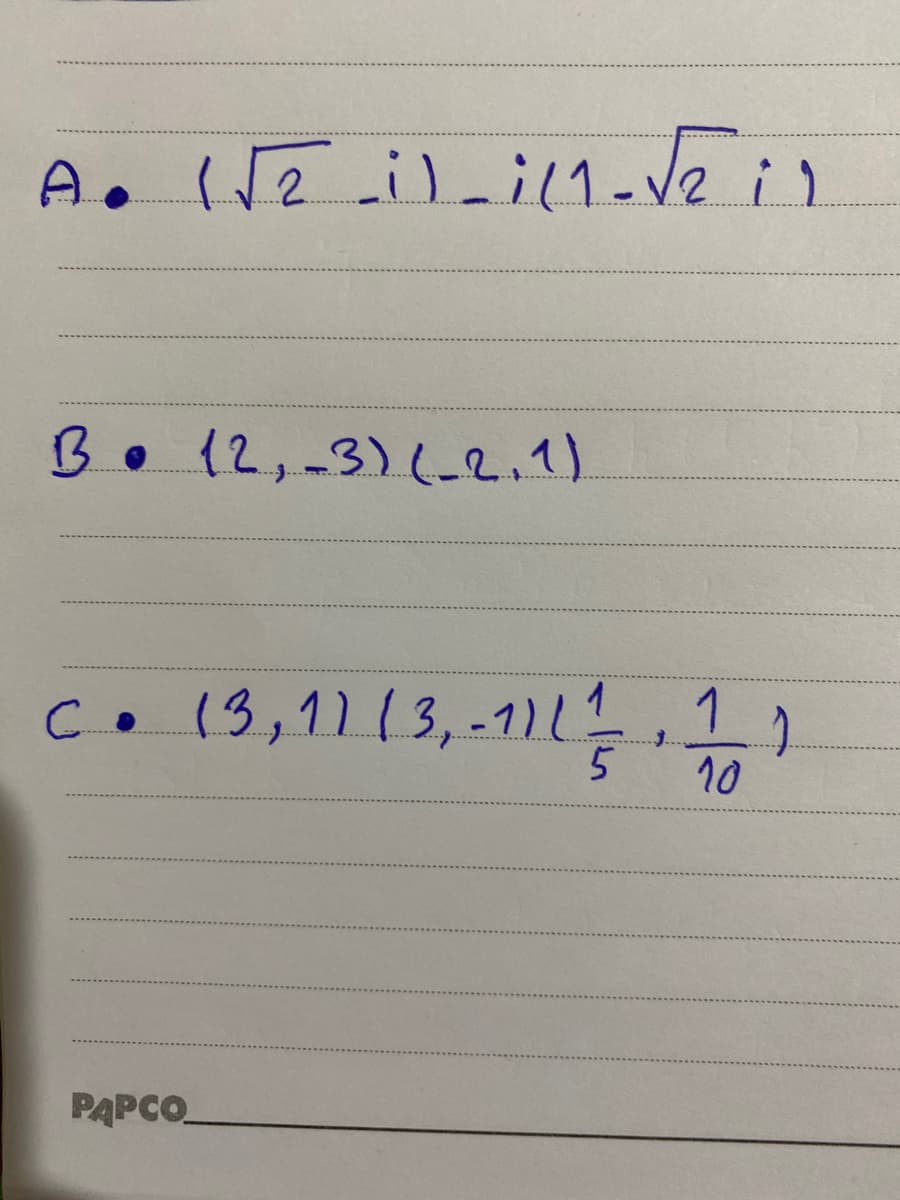 A. (√2 - i) - i(1 - √2 i)
B. (2, -3)(-2, 1)
C. (3, 1)(3, -1)(1/5, 1/10)
PAPCO